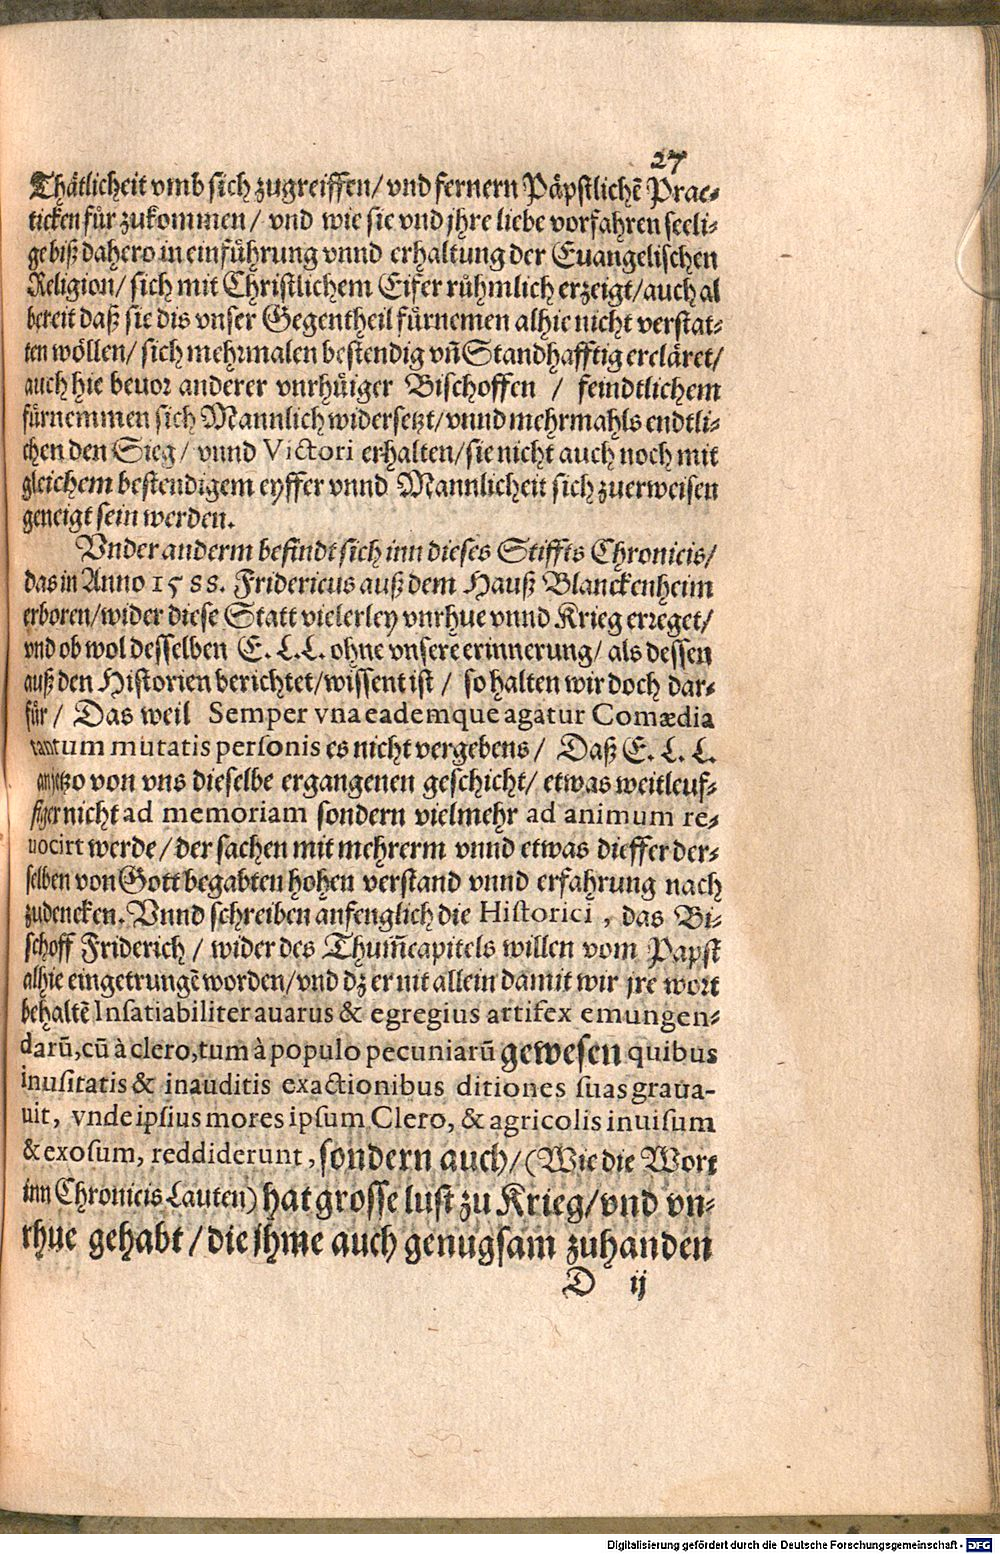 27
Thätlicheit vmb sich zugreiffen/ vnd fernern Päpstlichē Prac-
ticken für zukommen/ vnd wie sie vnd jhre liebe vorfahren seeli-
ge biß dahero in einführung vnnd erhaltung der Euangelischen
Religion/ sich mit Christlichem Eifer rühmlich erzeigt/ auch al
bereit daß sie dis vnser Gegentheil fürnemen alhie nicht verstat-
ten wöllen/ sich mehrmalen bestendig vñ Standhafftig ercläret/
auch hie beuor anderer vnrhüiger Bischoffen / feindtlichem
fürnemmen sich Mannlich widersetzt/ vnnd mehrmahls endtli-
chen den Sieg/ vnnd Victori erhalten/ sie nicht auch noch mit
gleichem bestendigem eyffer vnnd Mannlicheit sich zuerweisen
geneigt sein werden.
Vnder anderm befindt sich inn dieses Stiffts Chronicis/
das in Anno 1588. Fridericus auß dem Hauß Blanckenheim
erboren/ wider diese Statt vielerley vnrhue vnnd Krieg erreget/
vnd ob wol desselben E. L. L. ohne vnsere erinnerung/ als dessen
auß den Historien berichtet/ wissent ist / so halten wir doch dar-
für / Das weil Semper vna eademque agatur Comædia
tantum mutatis personis es nicht vergebens/ Daß E. L. L.
anjetzo von vns dieselbe ergangenen geschicht/ etwas weitleuf-
figer nicht ad memoriam sondern vielmehr ad animum re-
uocirt werde/ der sachen mit mehrerm vnnd etwas dieffer der-
selben von Gott begabten hohen verstand vnnd erfahrung nach
zudencken. Vnnd schreiben anfenglich die Historici, das Bi-
schoff Friderich / wider des Thum̄capitels willen vom Papst
alhie eingetrungē worden/ vnd dz er nit allein damit wir jre wort
behaltē Insatiabiliter auarus & egregius artifex emungen-
darū, cū à clero, tum à populo pecuniarū gewesen quibus
inusitatis & inauditis exactionibus ditiones suas graua-
uit, vnde ipsius mores ipsum Clero, & agricolis inuisum
& exosum, reddiderunt, sondern auch/ (Wie die Wort
inn Chronicis Lauten) hat grosse lust zu Krieg/ vnd vn-
rhue gehabt / die jhme auch genugsam zuhanden
D ij
Digitalisierung gefördert durch die Deutsche Forschungsgemeinschaft - DFG